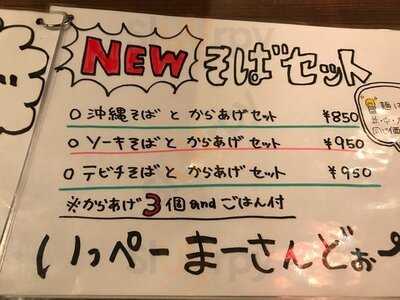 NEW そばセット
○ 沖縄そば と からあげセット ¥850
○ ソーキそば と からあげセット ¥950
○ テビチそば と からあげ セット ¥950
※からあげ 3 個 and ごはん付
いっぺーまーさんどぉ〜
麺は